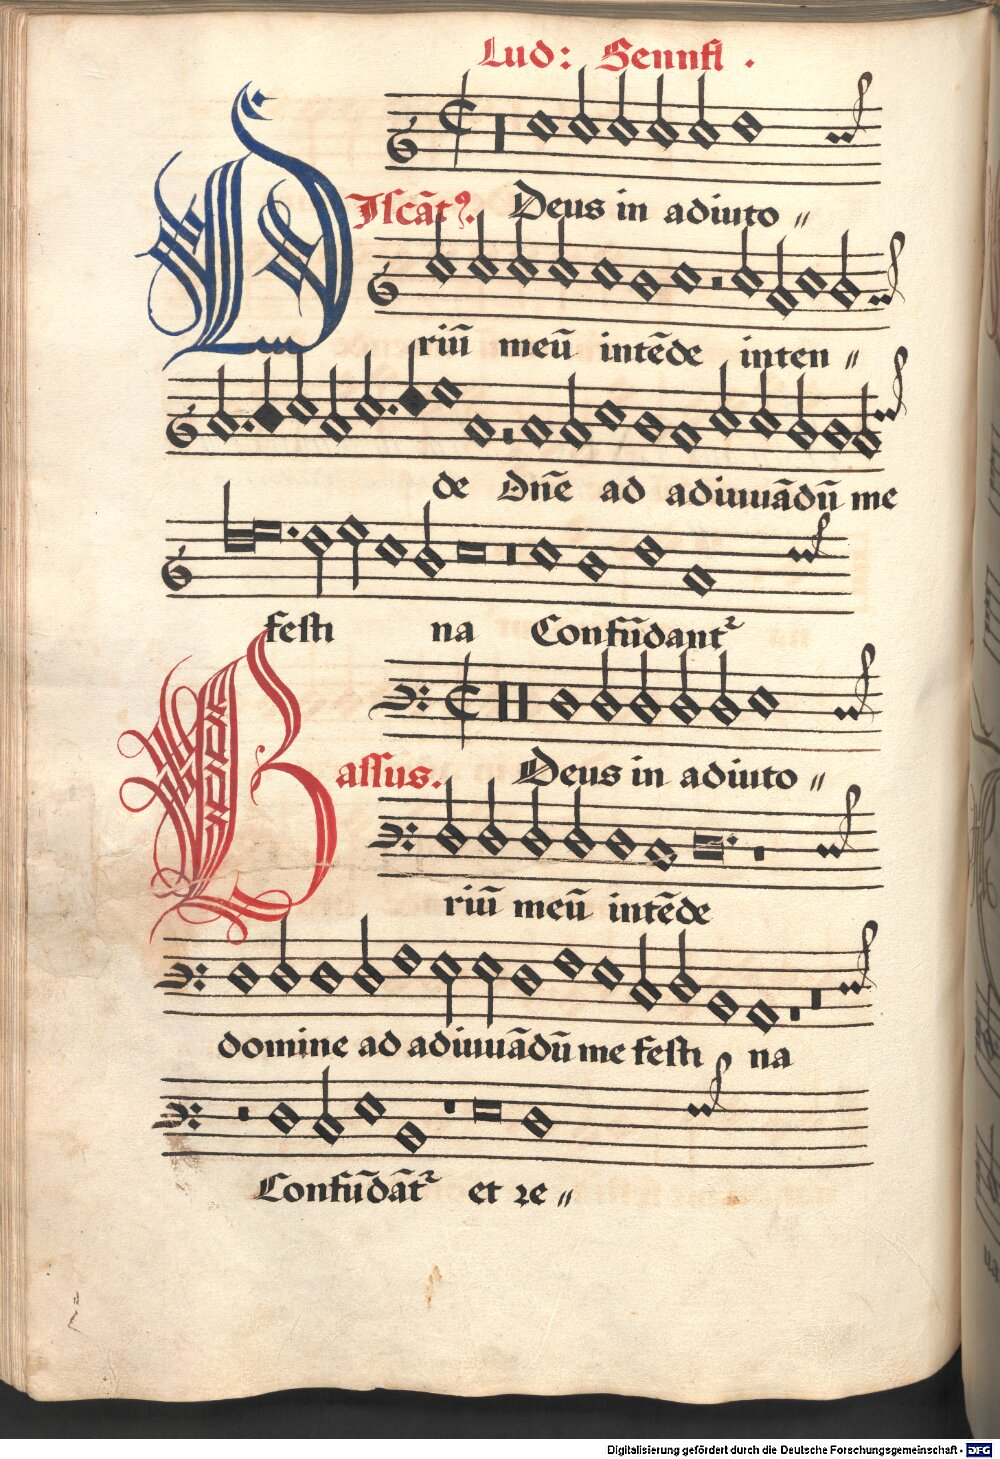 Lud: Sennfl .
Discãt9. Deus in adiuto〃
riũ meũ intẽde inten〃
de Dñe ad adiuuãdũ me
festi na Confũdant2
Bassus. Deus in adiuto〃
riũ meũ intẽde
domine ad adiuuãdũ me festi na
Confũdãt2 et re〃
Digitalisierung gefördert durch die Deutsche Forschungsgemeinschaft - DFG